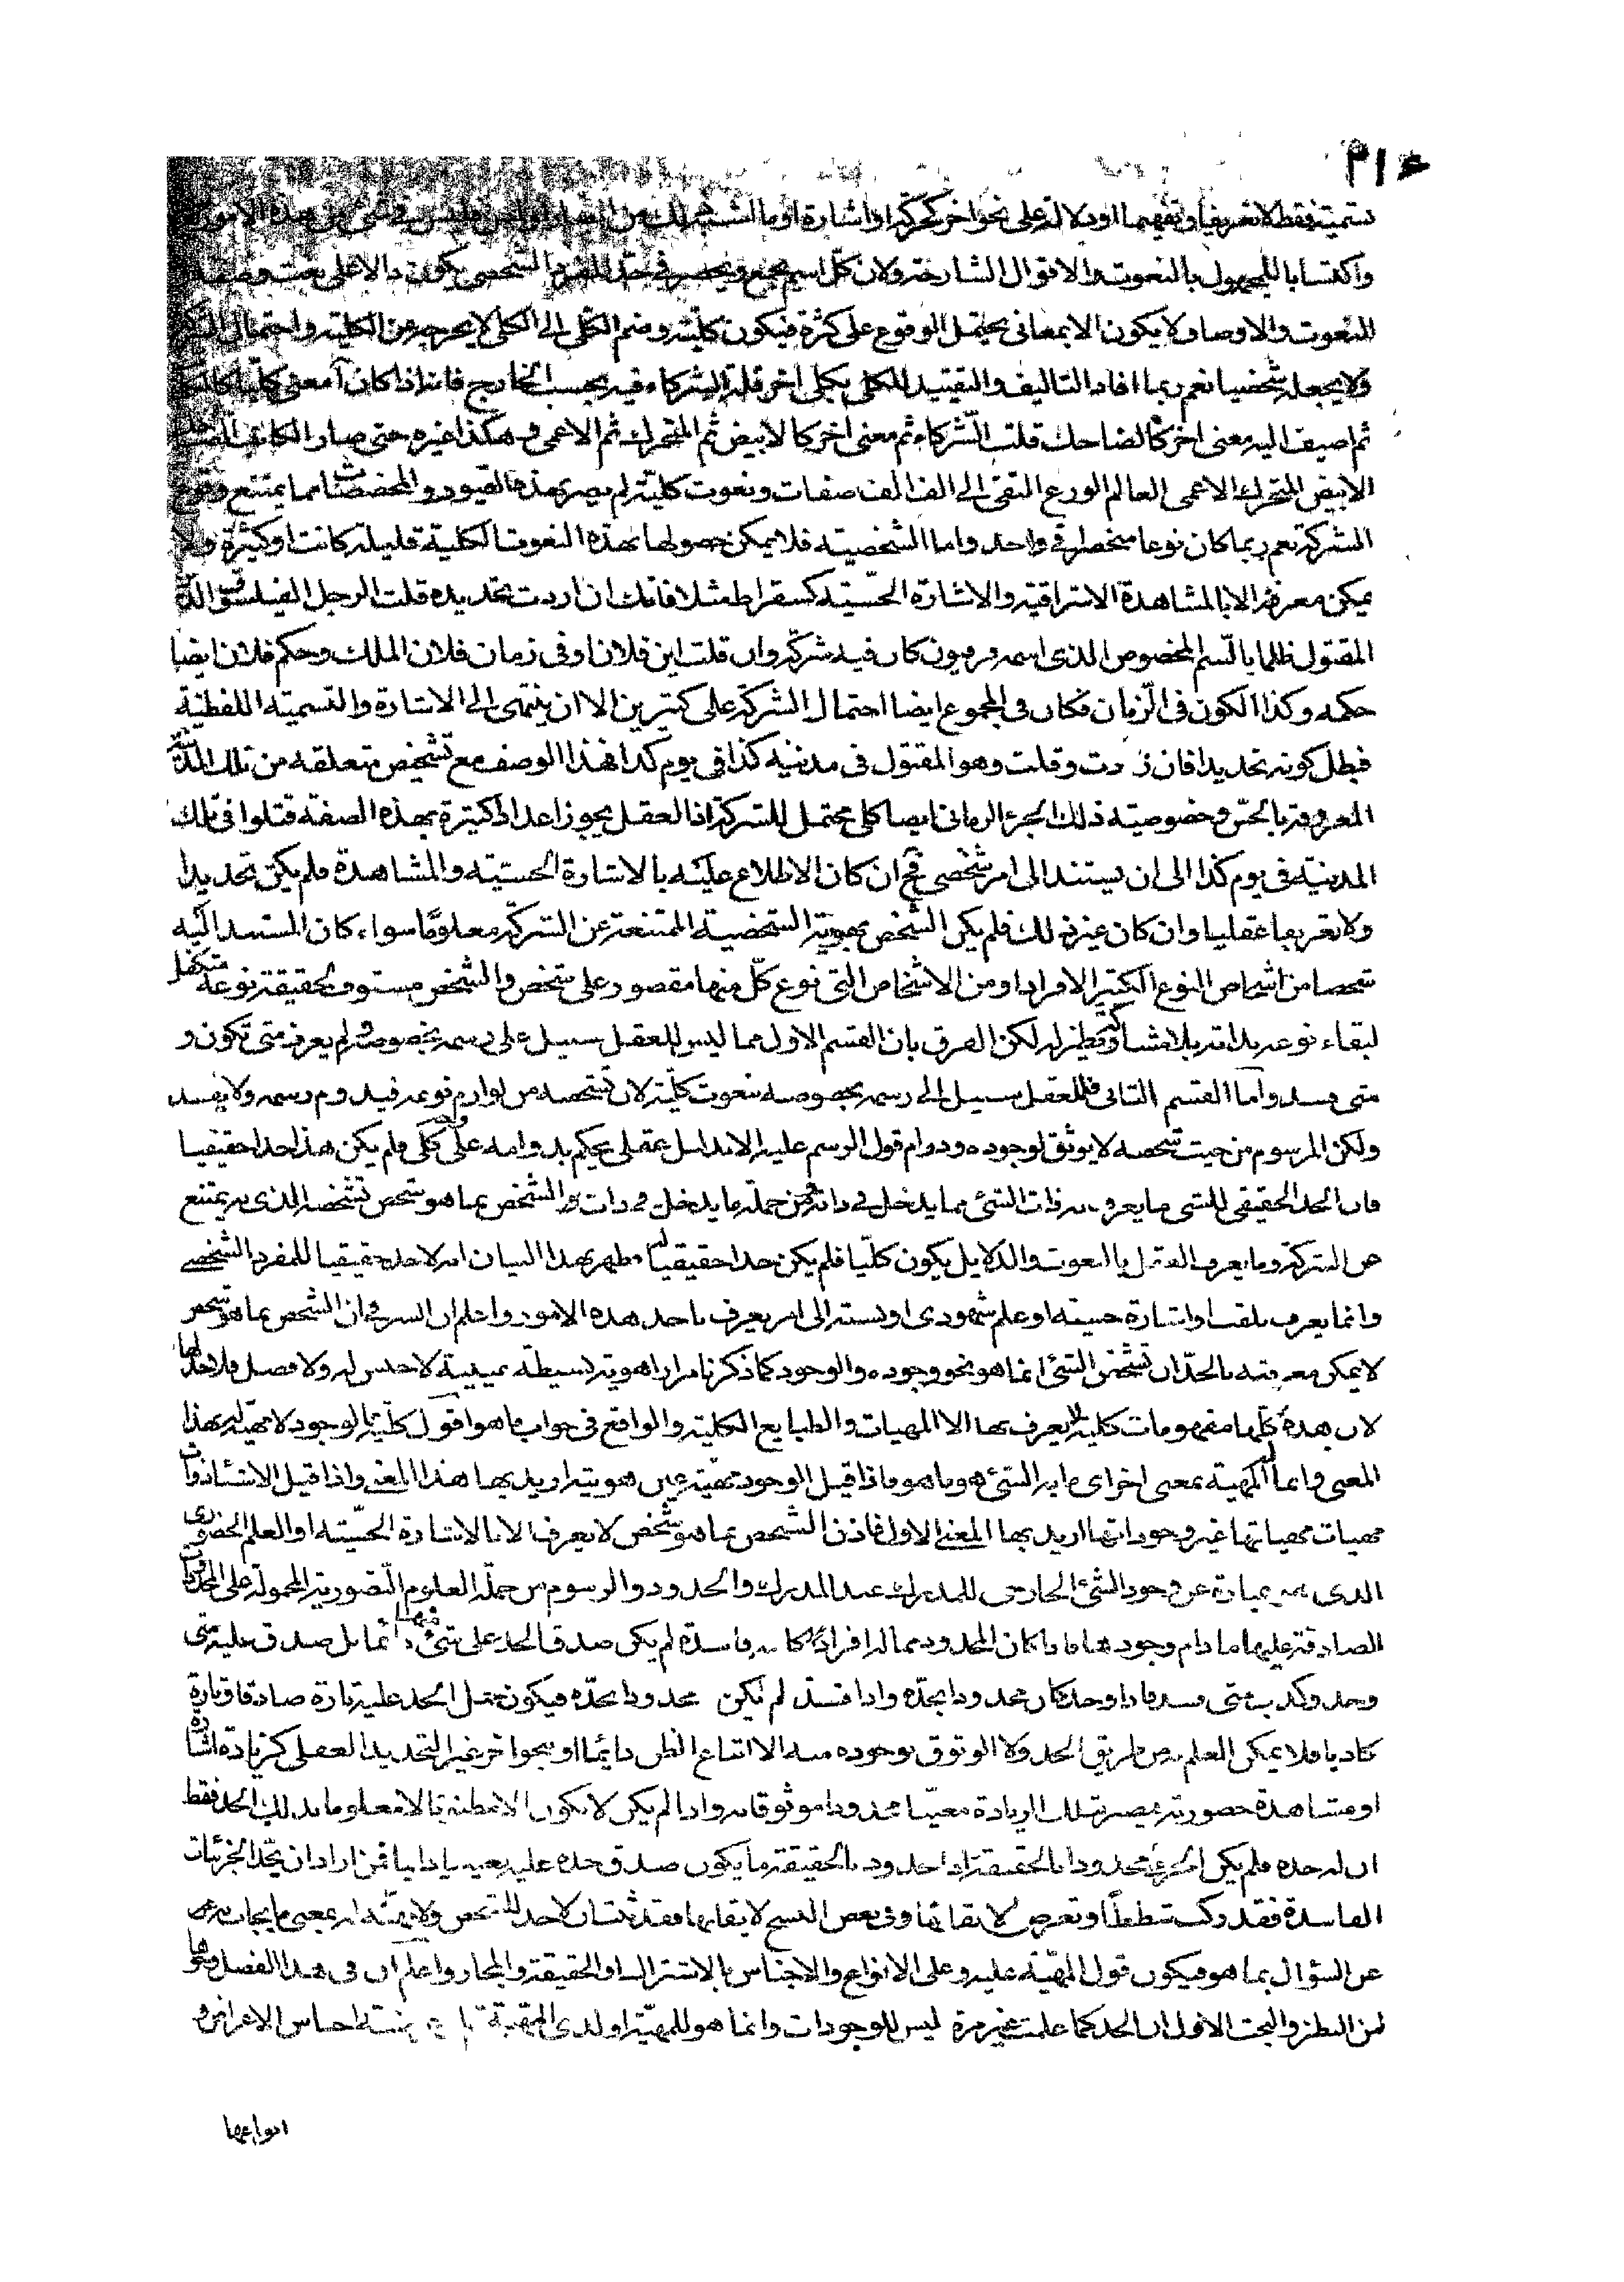 تسمية فقط لا تعريفا وتفهيما او دلالة على نحو اخر كحركة او اشارة او ما اشبه ذلك من
واكتسابا للمجهول بالنعوت والاقوال الشارحة ولان كل اسم يجمع ويحصر في حد للمفرد الشخصي يكون دالا على نعت
النعوت والاوصاف لا يكون الا بمعانى يحتمل الوقوع على كثرة فيكون كلية وضم الكلى الى الكلى لا يخرجه عن الكلية واحتمال
ولا يجعله شخصيا نعم ربما افاد التاليف والتقييد للكلى بكلى اخر قلة الشركاء فيه بحسب الخارج فانه اذا كان آ معنى كليا
ثم اضيف اليه معنى اخر كالضاحك قلت الشركاء ثم معنى اخر كالابيض ثم المتحرك ثم الاعمى وهكذا غيره حتى صار الكاتب
الابيض المتحرك الاعمى العالم الورع التقى الى الف الف صفات ونعوت كلية لم يصر بهذه القيود والمخصصات مما يمتنع وقوع
الشركة نعم ربما كان نوعا منحصرا في واحد واما الشخصية فلا يمكن حصولها بهذه النعوت الكلية قليلة كانت او كثيرة ولا
يمكن معرفته الا بالمشاهدة الاشراقية والاشارة الحسية كسقراط مثلا فانك ان اردت تحديده قلت الرجل الفيلسوف الدين
المقتول ظلما بالسم المخصوص الذى اسمه فرميون كان فيه شركة وان قلت ابن فلان او فى زمان فلان الملك وحكم فلان ايضا
حكمه وكذا الكون فى الزمان فكان فى المجموع ايضا احتمال الشركة على كثيرين الا ان ينتهى الى الاشارة والتسمية اللفظية
فبطل كونه تحديدا فان زدت وقلت وهو المقتول فى مدينة كذا فى يوم كذا فهذا الوصف مع تشخيص متعلقه من تلك المدينة
المعروفة بالحس وخصوصية ذلك الجزء الزمانى ايضا كلى محتمل للشركة اذ العقل يجوز اعدادا كثيرة بهذه الصفة قتلوا فى تلك
المدينة فى يوم كذا الى ان يستند الى امر شخصى فح ان كان الاطلاع عليه بالاشارة الحسية والمشاهدة فلم يكن تحديدا
ولا تعريفا عقليا وان كان غير ذلك فلم يكن الشخص بهويته الشخصية الممتنعة عن الشركة معلوما سواء كان المستند اليه
شخصا من اشخاص النوع الكثير الافراد او من الاشخاص التى نوع كل منها مقصور على شخص والشخص مستوف لحقيقة نوعه متكفل
لبقاء نوعه بذاته بلا مشارك ونظير له لكن الفرق بان القسم الاول مما ليس للعقل سبيل على رسمه بخصوصه ولم يعرف متى تكون و
متى فسد واما القسم الثانى فللعقل سبيل الى رسمه بخصوصه بنعوت كلية لان تشخصه من لوازم نوعه فيدوم رسمه ولا يفسد
ولكن المرسوم من حيث تشخصه لا يوثق لوجوده ودوام قول الرسم عليه الا بدليل عقلى يحكم بدوامه على وجه كلى فلم يكن هذا حدا حقيقيا
فان الحد الحقيقى للشى ما يعرف به ذات الشئ مما يدخل فى ذاته ومن جملة ما يدخل فى ذات الشخص بما هو شخص تشخصه الذى به يمتنع
عن الشركة وما يعرف العقل بالنعوت والدلايل يكون كليا فلم يكن حدا حقيقيا له فظهر بهذا البيان انه لا حد حقيقيا للمفرد الشخصى
وانما يعرف بلقب او اشارة حسية او علم شهودى او نسبة الى امر يعرف باحد هذه الامور واعلم ان السر فى ان الشخص بما هو شخص
لا يمكن معرفته بالحد ان تشخص الشئ انما هو نحو وجوده والوجود كما ذكرنا مرارا هوية بسيطة عينية لا جنس له ولا فصل فلا حد لها
لان هذه كلها مفهومات كلية لا يعرف بها الا المهيات والطبايع الكلية والواقع فى جواب ما هو اقول كلية والوجود لا مهية له بهذا
المعنى وانما له المهية بمعنى اخر اى ما به الشئ هو ما هو فاذا قيل الوجود مهيته عين هويته اريد بها هذا المعنى واذا قيل الاشياء ذوات
مهيات مهياتها غير وجوداتها اريد بها المعنى الاول فاذن الشخص بما هو شخص لا يعرف الا بالاشارة الحسية او العلم الحضورى
الذى هو عبارة عن وجود الشئ الخارجى للمدرك عند المدرك والحدود والرسوم من جملة العلوم التصورية المحمولة على المحدودات
الصادقة عليها ما دام وجودها فاذا كان المحدود مما له افراد كائنة فاسدة لم يكن صدق الحد على شئ منها دائما بل صدق عليه متى
وجد وكذب متى فسد فاذا وجد كان محدودا بحده واذا فسد لم يكن محدودا بحده فيكون حمل الحد عليه تارة صادقا وتارة
كاذبا فلا يمكن العلم به من طريق الحد ولا الوثوق بوجوده منه الا اتباع الظن دايما او بنحو اخر غير التحديد العقلى كزيادة اشارة
او مشاهدة حضورية يصير بتلك الزيادة معينا محدودا موثوقا به واذا لم يكن لا يكون الا مظنونا به لا معلوما بذلك الحد فقط
ان له حده فلم يكن الجزئى محدودا بالحقيقة اذ المحدود بالحقيقة ما يكون صدق حده عليه يقينيا دايما فمن اراد ان يحد الجزئيات
الفاسدة فقد ركب شططا وتعرض لابقائها وفى بعض النسخ لا بقاء لها فقد ثبت ان لا حد للشخص ولا مهية له بمعنى ما يجاب به
عن السؤال بما هو فيكون قول المهية عليه وعلى الانواع والاجناس بالاشتراك او الحقيقة والمجاز واعلم ان فى هذا الفصل
من النظر والبحث الاول ان الحد كما علمت غير مرة ليس للوجودات وانما هو للمهية او لذى المهية احساس الاعراض و
انواعها